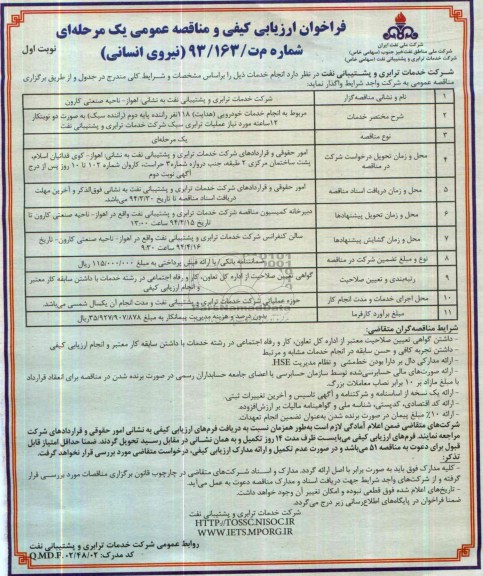 فراخوان ارزیابی کیفی و مناقصه عمومی یک مرحله‌ای
شماره م‌ت/۹۳/۱۶۳ (نیروی انسانی)
نوبت اول
شرکت ملی نفت ایران
شرکت ملی مناطق نفت‌خیز جنوب (سهامی خاص)
شرکت خدمات ترابری و پشتیبانی نفت (سهامی خاص)
شرکت خدمات ترابری و پشتیبانی نفت در نظر دارد انجام خدمات ذیل را براساس مشخصات و شرایط کلی مندرج در جدول و از طریق برگزاری
مناقصه عمومی به شرکت واجد شرایط واگذار نماید:
۱ نام و نشانی مناقصه‌گزار شرکت خدمات ترابری و پشتیبانی نفت به نشانی: اهواز- ناحیه صنعتی کارون
۲ شرح مختصر خدمات مربوط به انجام خدمات خودرویی (هدایت) ۱۱۸نفر راننده پایه دوم (راننده سبک) به صورت دو نوبتکار
۱۲ساعته مورد نیاز عملیات ترابری سبک شرکت خدمات ترابری و پشتیبانی نفت
۳ نوع مناقصه یک مرحله‌ای
۴ محل و زمان تحویل درخواست شرکت در مناقصه امور حقوقی و قراردادهای شرکت خدمات ترابری و پشتیبانی نفت به نشانی: اهواز- کوی فدائیان اسلام،
پشت ساختمان مرکزی ۲ طبقه، جنب دروازه شماره۳ حراست، کاروان شماره ۱۰۲ تا ۱۰ روز پس از درج
آگهی نوبت دوم
۵ محل و زمان دریافت اسناد مناقصه امور حقوقی و قراردادهای شرکت خدمات ترابری و پشتیبانی نفت به نشانی فوق‌الذکر و آخرین مهلت
دریافت اسناد مناقصه تا تاریخ ۹۴/۳/۳۰ می‌باشد.
۶ محل و زمان تحویل پیشنهادها دبیرخانه کمیسیون مناقصه شرکت خدمات ترابری و پشتیبانی نفت واقع در اهواز- ناحیه صنعتی کارون تا
تاریخ ۹۴/۴/۱۵ ساعت ۱۳:۰۰
۷ محل و زمان گشایش پیشنهادها سالن کنفرانس شرکت خدمات ترابری و پشتیبانی نفت واقع در اهواز- ناحیه صنعتی کارون- تاریخ
۹۴/۴/۱۶ ساعت ۹:۳۰
۸ نوع و مبلغ تضمین شرکت در مناقصه ضمانت‌نامه بانکی/یا ارائه فیش پرداختی به مبلغ ۱/۱۵۰/۰۰۰/۰۰۰ ریال
۹ رتبه‌بندی و تعیین صلاحیت گواهی تعیین صلاحیت از اداره کل تعاون، کار و رفاه اجتماعی در رشته خدمات با داشتن سابقه کار معتبر
و انجام ارزیابی کیفی
۱۰ محل اجرای خدمات و مدت انجام کار حوزه عملیاتی شرکت خدمات ترابری و پشتیبانی نفت و مدت انجام آن یکسال شمسی می‌باشد.
۱۱ مبلغ برآورد کارفرما بدون درصد و هزینه مدیریت پیمانکار به مبلغ ۳۵/۹۲۷/۹۰۷/۸۷۸ریال
شرایط مناقصه‌گران متقاضی:
- داشتن گواهی تعیین صلاحیت معتبر از اداره کل تعاون، کار و رفاه اجتماعی در رشته خدمات با داشتن سابقه کار معتبر و انجام ارزیابی کیفی
- داشتن تجربه کافی و حسن سابقه در انجام خدمات مشابه و مرتبط
- ارائه مدارکی دال بر دارا بودن خط‌مشی و نظام مدیریت HSE.
- ارائه صورت‌های مالی حسابرسی‌شده توسط سازمان حسابرسی یا اعضای جامعه حسابداران رسمی در صورت برنده شدن در مناقصه برای انعقاد قرارداد
با مبلغ مازاد بر ۱۰ برابر نصاب معاملات بزرگ.
- ارائه یک نسخه از اساسنامه و شرکتنامه و آگهی تاسیس و آخرین تغییرات ثبتی.
- ارائه کد اقتصادی، کدپستی، شناسه ملی و گواهینامه مالیات بر ارزش‌افزوده.
- ارائه ۱۰٪ مبلغ پیمان در صورت برنده شدن به‌عنوان تضمین انجام تعهدات
شرکت‌های متقاضی ضمن اعلام آمادگی لازم است به‌طور همزمان نسبت به دریافت فرم‌های ارزیابی کیفی به نشانی امور حقوقی و قراردادهای شرکت
مراجعه نمایند. فرم‌های ارزیابی کیفی می‌بایست ظرف مدت ۱۴ روز تکمیل و به همان نشانی در مقابل رسید تحویل گردند. ضمنا حداقل امتیاز قابل
قبول برای دعوت به مناقصه ۵۱ می‌باشد و در صورت عدم تکمیل و ارائه مدارک ارزیابی کیفی، درخواست متقاضی مورد بررسی قرار نخواهد گرفت.
تذکر:
- کلیه مدارک فوق باید به صورت برابر با اصل ارائه گردد. مدارک و اسناد شرکت‌های متقاضی در چارچوب قانون برگزاری مناقصات مورد بررسی قرار
گرفته و از شرکت‌های واجد شرایط جهت دریافت اسناد و مدارک مناقصه دعوت به عمل می‌آید.
- تاریخ‌های اعلام شده فوق قطعی نبوده و امکان تغییر آن وجود خواهد داشت.
ضمنا فراخوان در پایگاه‌های اطلاع‌رسانی زیر درج می‌گردد.
شرکت خدمات ترابری و پشتیبانی نفت
HTTP://TOSSC.NISOC.IR
WWW.IETS.MPORG.IR
روابط عمومی شرکت خدمات ترابری و پشتیبانی نفت
کد مدرک: Q.MD.F. ۰۲/۴۸/۰۲